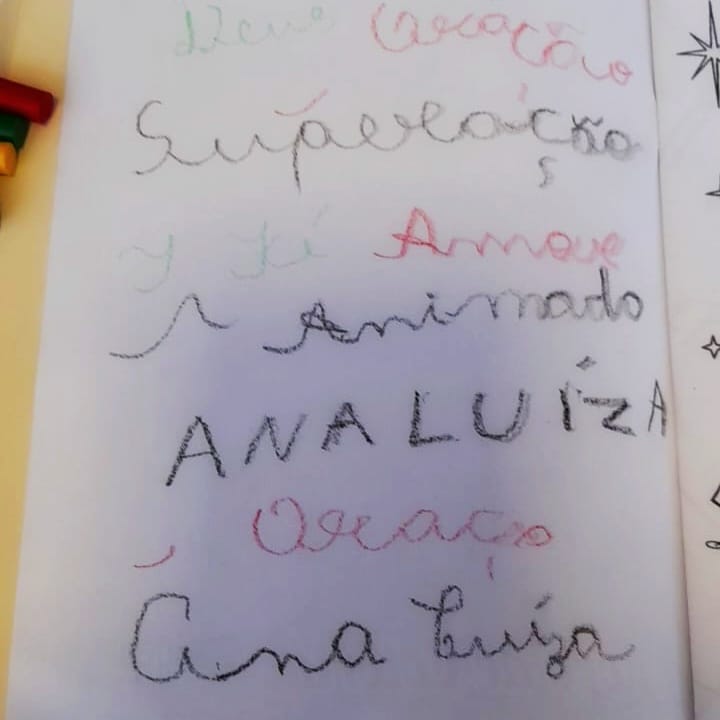 Deus Oração
Superação
Fé Amor
Animado
ANA LUÍZA
Oraço
Ana Luíza